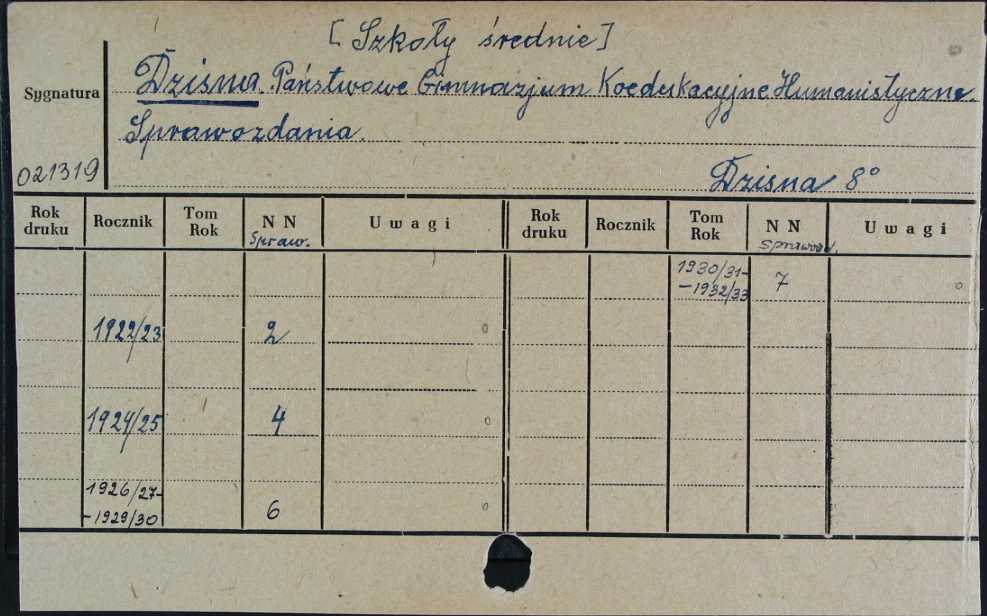 [Szkoły średnie]
Dzisna. Państwowe Gimnazjum Koedukacyjne Humanistyczne.
Sygnatura
Sprawozdania.
021319
Dzisna 8°
Rok druku Rocznik Tom Rok N N Spraw. Uwagi Rok druku Rocznik Tom Rok N N Sprawozd. Uwagi
1930/31-
-1932/33 7 o
1922/23 2 o
1924/25 4 o
1926/27-
-1929/30 6 o